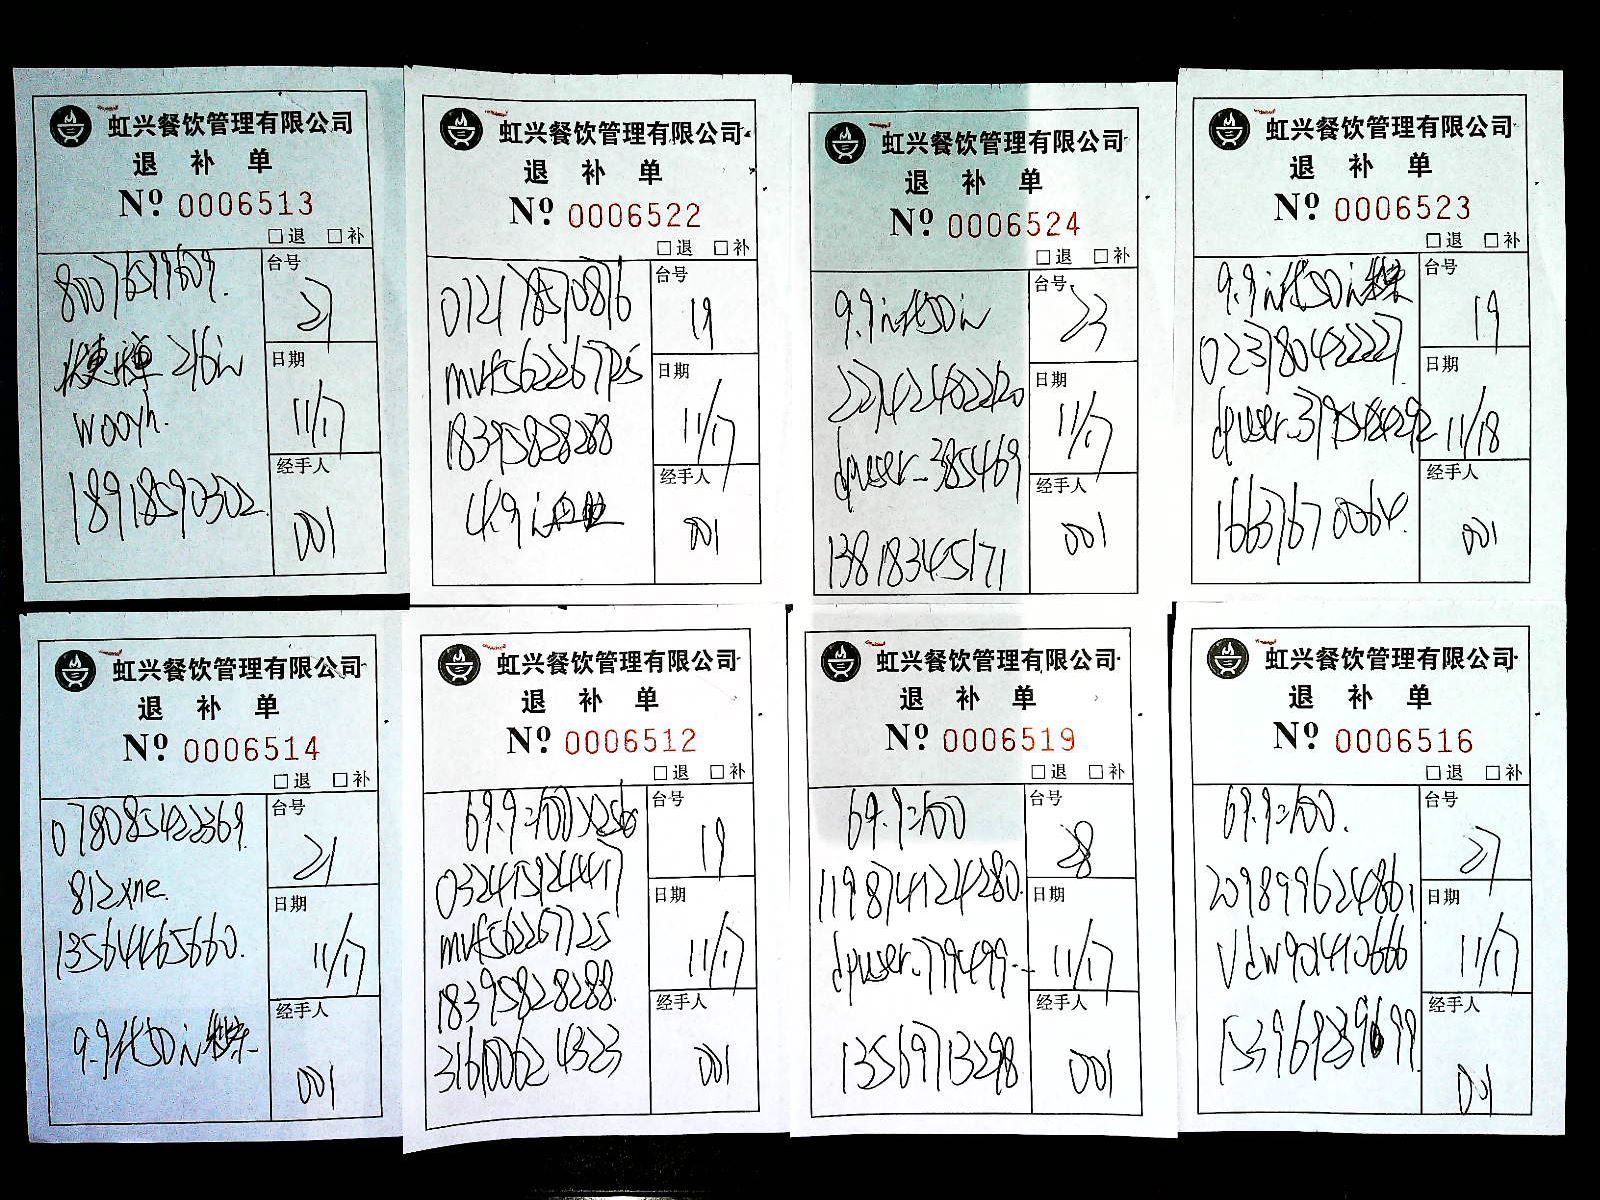 虹兴餐饮管理有限公司
退 补 单
Nº 0006513
□退 □补
80076519609.
216
wooyh.
18918590302
台号
21
日期
11/17
经手人
001
虹兴餐饮管理有限公司
退 补 单
Nº 0006522
□退 □补
18395828288
4.9
台号
19
日期
11/17
经手人
001
虹兴餐饮管理有限公司
退 补 单
Nº 0006524
□退 □补
9.9元代50元
dpuser_385469
13818345171
台号
23
日期
11/17
经手人
001
虹兴餐饮管理有限公司
退 补 单
Nº 0006523
□退 □补
9.9元代50元
023180422227
16637670064.
台号
19
日期
11/18
经手人
001
虹兴餐饮管理有限公司
退 补 单
Nº 0006514
□退 □补
078085422369.
812xne.
13564465660.
9.9代50元
台号
21
日期
11/17
经手人
001
虹兴餐饮管理有限公司
退 补 单
Nº 0006512
□退 □补
69.9=100
032415924417
mvf562267725
18395828288.
316100624323
台号
19
日期
11/17
经手人
001
虹兴餐饮管理有限公司
退 补 单
Nº 0006519
□退 □补
69.9=100
119874124280.
13569713298
台号
28
日期
11/17
经手人
001
虹兴餐饮管理有限公司
退 补 单
Nº 0006516
□退 □补
69.9=100.
209899624861
Vdw901410666
台号
27
日期
11/17
经手人
001